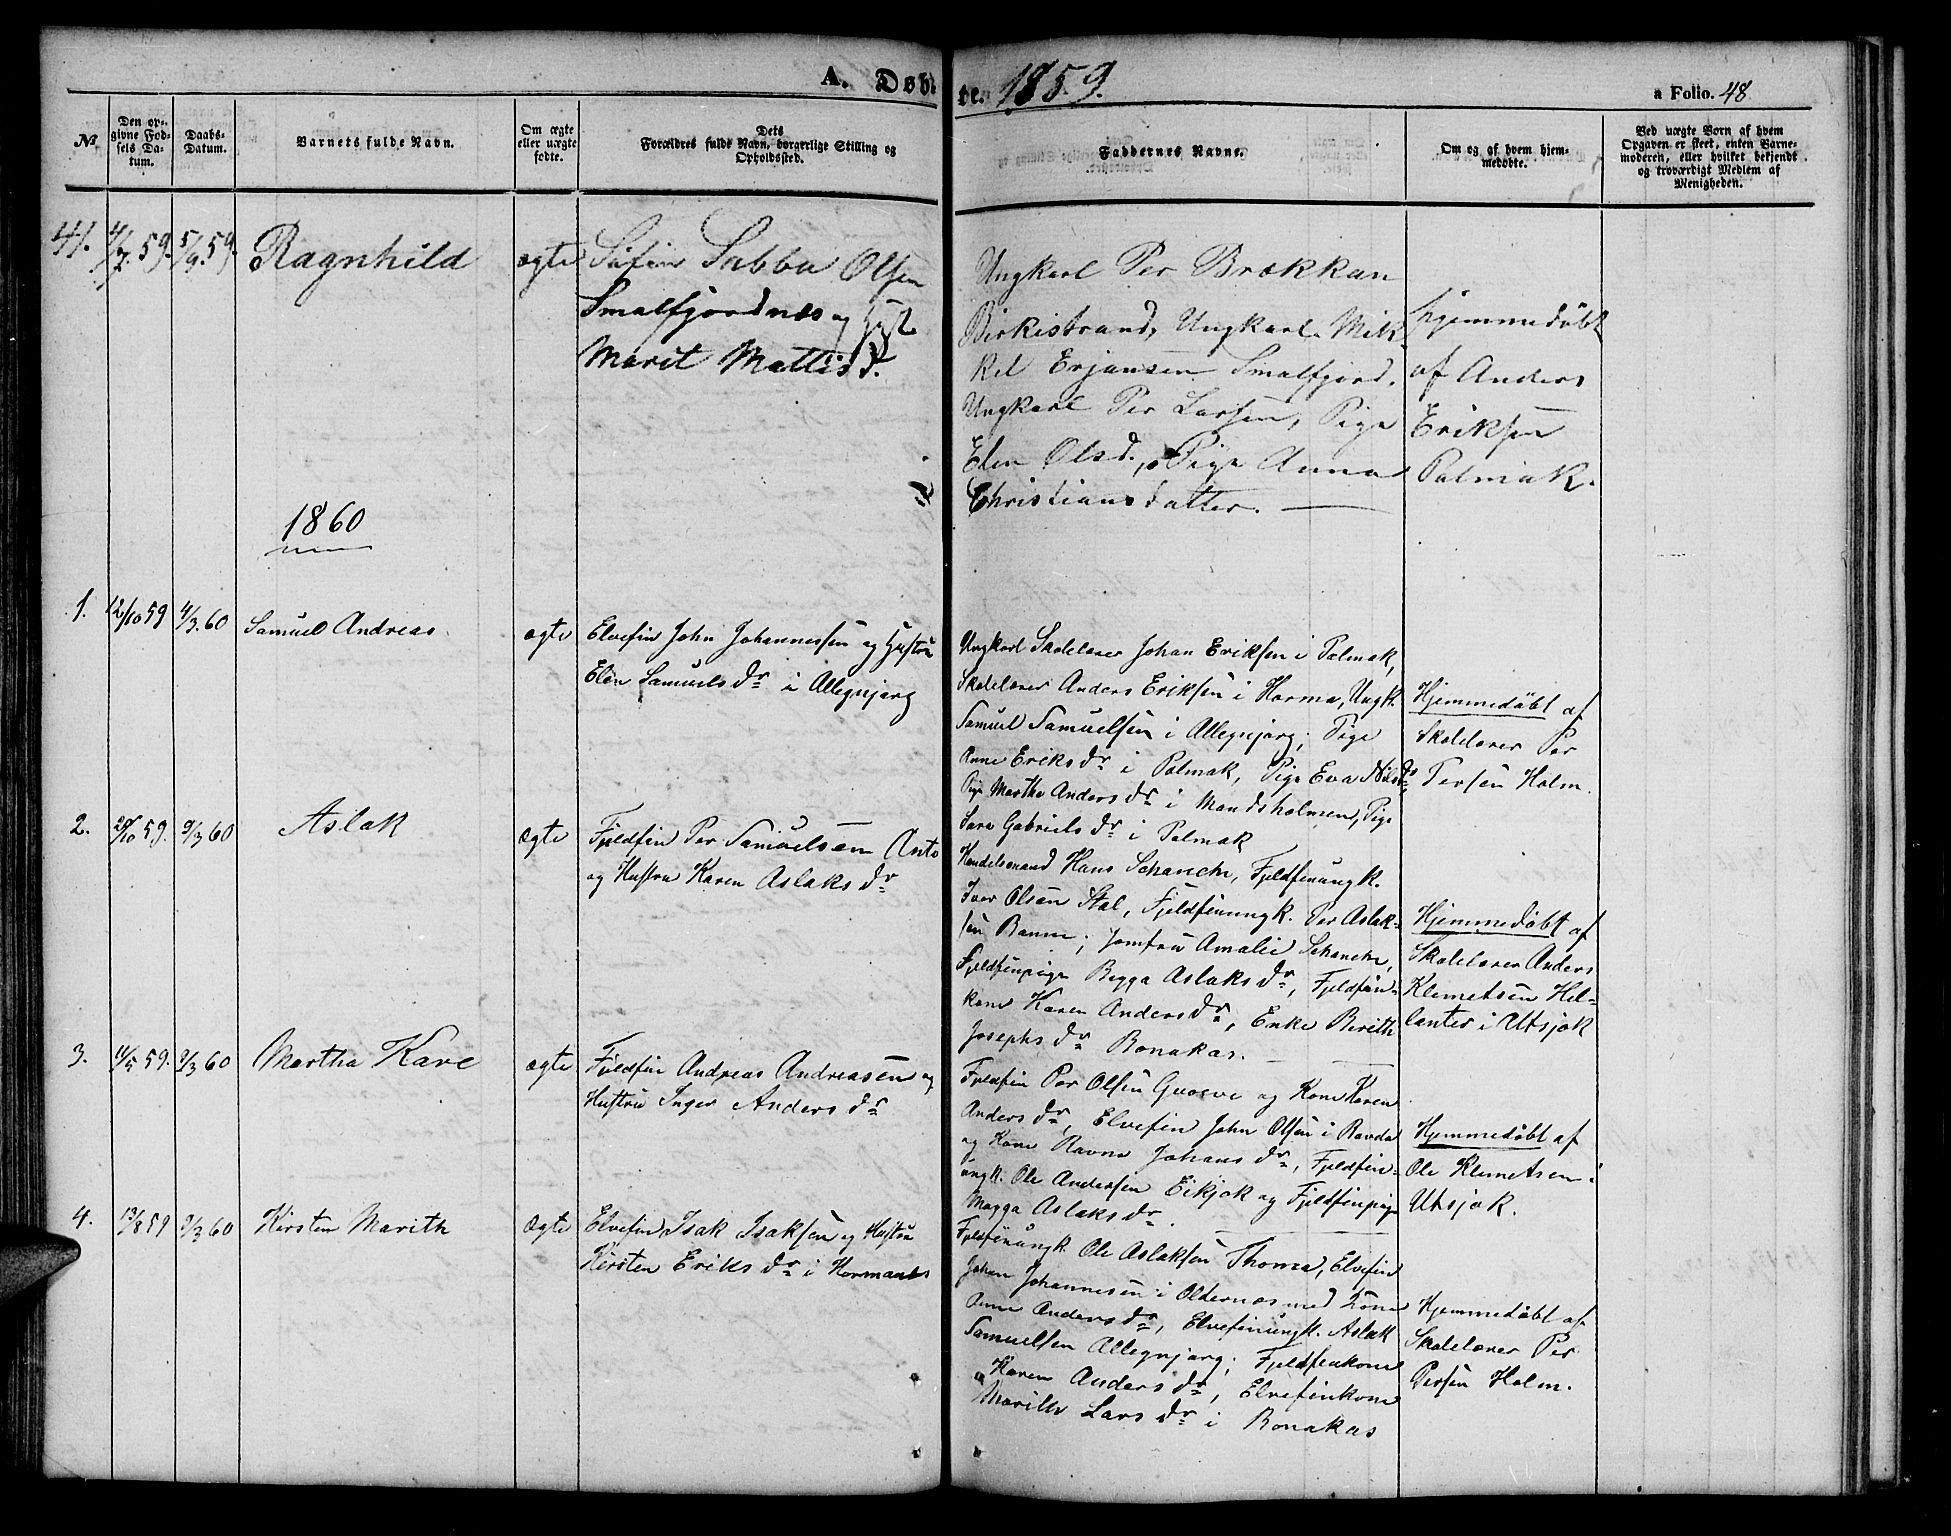 A. Døbte. 1859.
a Folio. 48
No.
Den opgivne Fødsels Datum.
Daabs-Datum.
Barnets fulde Navn.
Om ægte eller uægte fødte.
Dets Forældres fulde Navn, borgerlige Stilling og Opholdssted.
Faddernes Navne.
Om og af hvem hjemmedøbte.
Ved uægte Børn af hvem Opgaven er skeet, enten Barnemoderen, eller hvilket bekjendt og troværdigt Medlem af Menigheden.
41. 4/7. 59. 5/9. 59. Ragnhild ægte
Søfin Sabba Olsen
Smalfjordnæs og Hust.
Marit Mattisd.
Ungkarl Per Brækkan
Birkistrand, Ungkarl Mik-
kel Erjansen Smalfjord,
Ungkarl Per Larsen, Pige
Elen Olsd., Pige Anna
Christiansdatter.
hjemmedøbt
af Anders
Eriksen
Polmak.
1860
1. 12/10 59 4/3. 60 Samuel Andreas. ægte
Elvefin John Johannessen og Hustru
Elen Samuels dr i Allegnjarg
Ungkarl Skolelærer Johan Eriksen i Polmak,
Skolelærer Anders Eriksen i Horma, Ungk.
Samuel Samuelsen i Allegnjarg; Pige
Anne Eriks dr i Polmak, Pige Eva Nils dr
Pige Marthe Anders dr i Mandsholmen, Pige
Sara Gabriels dr i Polmak
Hjemmedøbt af
Skolelærer Per
Persen Holm.
2. /10 59. 9/3 60 Aslak ægte
Fjeldfin Per Samuelsen Anto
og Hustru Karen Aslaks dr
Handelsmand Hans Schanche, Fjeldfinungk.
Iver Olsen Stal, Fjeldfinungk. Per Aslak-
sen Banne; Jomfru Amalie Schanche,
Fjeldfinpige Begga Aslaks dr, Fjeldfin-
kone Karen Anders dr, Enke Berith
Josephs dr Bonakas.
Hjemmedøbt af
Skolelærer Anders
Klemetsen Hel-
lanter i Utsjok
3. 11/5 59. 9/3 60 Martha Kare ægte
Fjeldfin Andreas Andreasen og
Hustru Inger Anders dr
Fjeldfin Per Olsen Guosve og Kone Karen
Anders dr, Elvefin John Olsen i Ravda
og Kone Ravna Johans dr, Fjeldfin-
ungk. Ole Andersen Eikjok og Fjeldfinpige
Magga Aslaks dr.
Hjemmedøbt af
Ole Klemetsen i
Utsjok.
4. 13/8 59 9/3 60 Kirsten Marith ægte
Elvefin Isak Isaksen og Hustru
Kirsten Eriks dr i Hormanæs
Fjeldfinungk. Ole Aslaksen Thoma, Elvefin
Johan Johannesen i Oldernæs med Kone
Anne Anders dr, Elvefinungk. Aslak
Samuelsen Allegnjarg; Fjeldfinkone
Karen Anders dr, Elvefinkone
Marith Lars dr i Bonakas
Hjemmedøbt af
Skolelærer Per
Persen Holm.